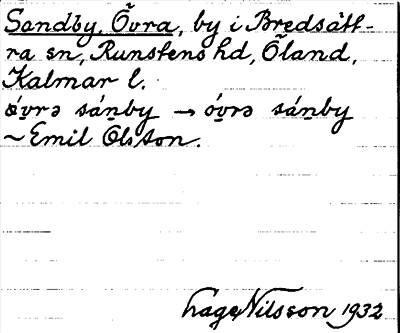 Sandby, Övra, by i Bredsätt-
ra sn, Runstens hd, Öland,
Kalmar l.
óvrə sánby → óvrə sánby
~ Emil Olsson.
Hage Nilsson 1932